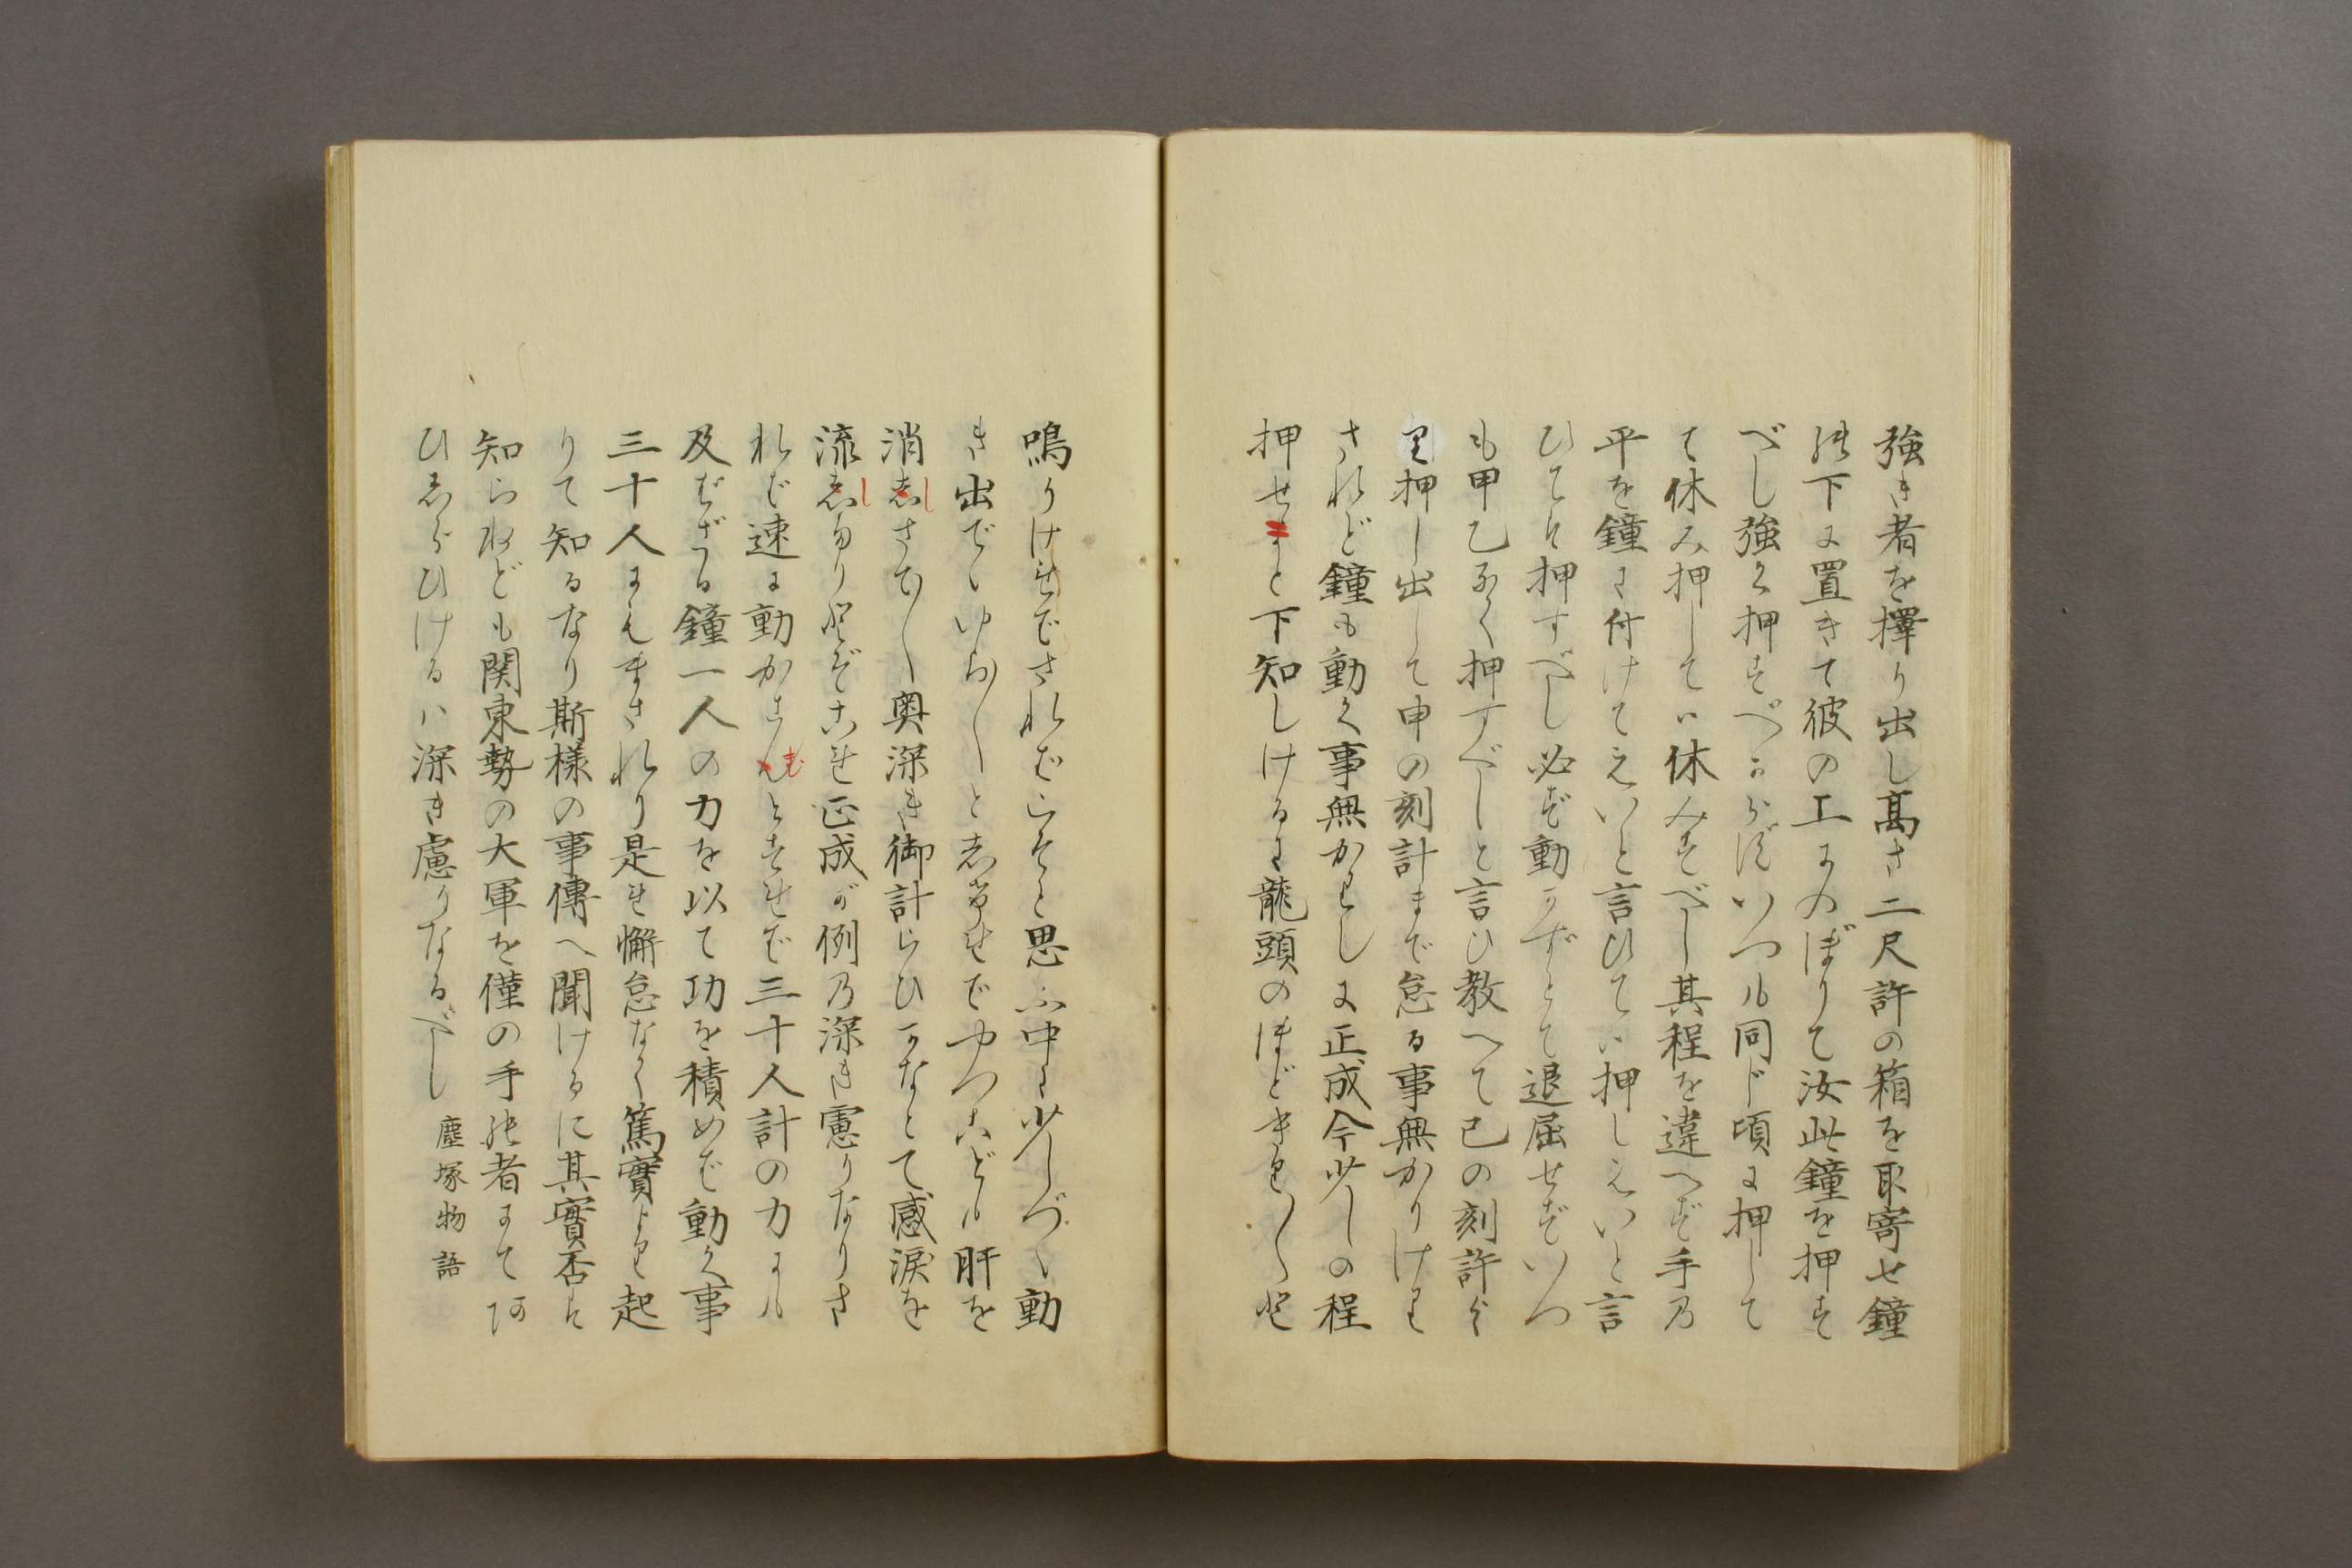 強き者を擇り出し髙さ二尺許の箱を取寄せ鐘
の下に置きて彼の工にのぼりて汝此鐘を押す
べし強く押すべからずいつも同じ頃に押して
て休み押してハ休みすべし其程を違へず手乃
平を鐘に付けてえいと言ひてハ押しえいと言
ひてハ押すべし必ず動かずとて退屈せずいつ
も甲乙なく押すべしと言ひ教へて己の刻許よ
り押し出して申の刻計まで怠る事無かりけり
されど鐘も動く事無かりしに正成今少しの程
押せよと下知しけるに龍頭のほどきり〳〵と
鳴りけれバされバこそと思ふ中に少しづゝ動
き出でゝゆら〳〵としけれバやつこども肝を
消志さて〳〵奥深き御計らひかなとて感涙を
流志けりとぞこれ正成が例乃深き慮りなりさ
れバ速に動かさんとすれバ三十人計の力にも
及ばざる鐘一人の力を以て功を積めバ動く事
三十人にもまされり是れ懈怠なく篤實より起
りて知るなり斯様の事傳へ聞けるに其實否は
知らねども関東勢の大軍を僅の手の者にて阿
ひしらひけるハ深き慮りなるべし 塵塚物語